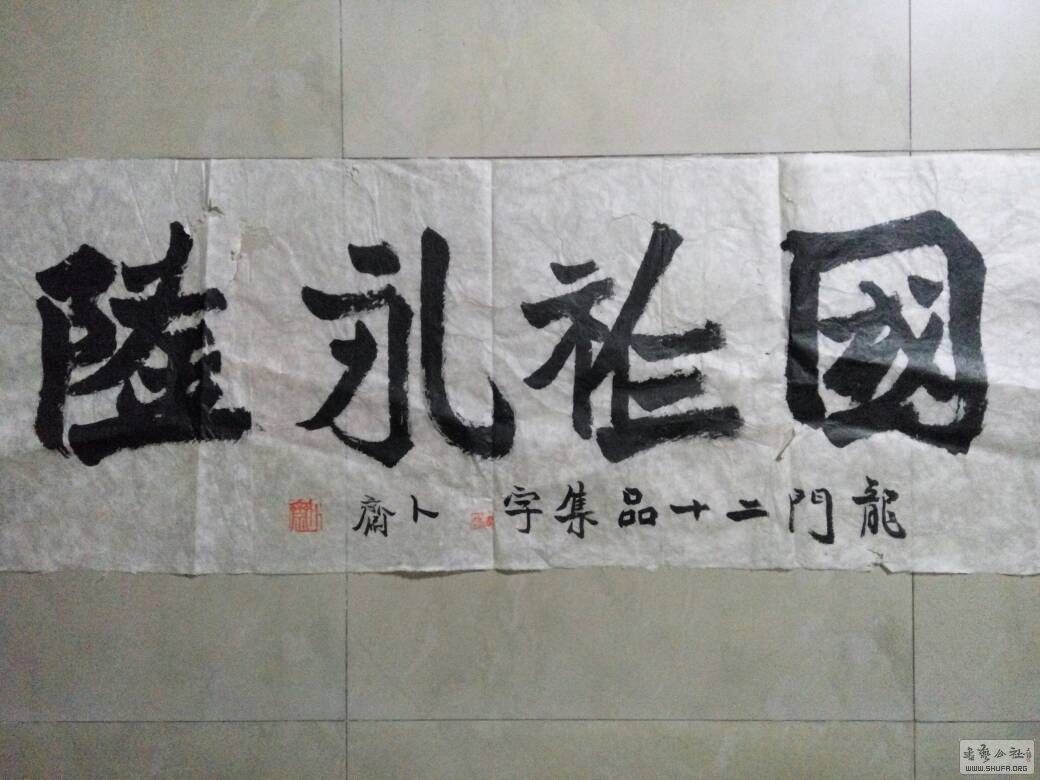 國祚永隆
龍門二十品集字 卜齋
書藝公社
WWW.SHUFA.ORG